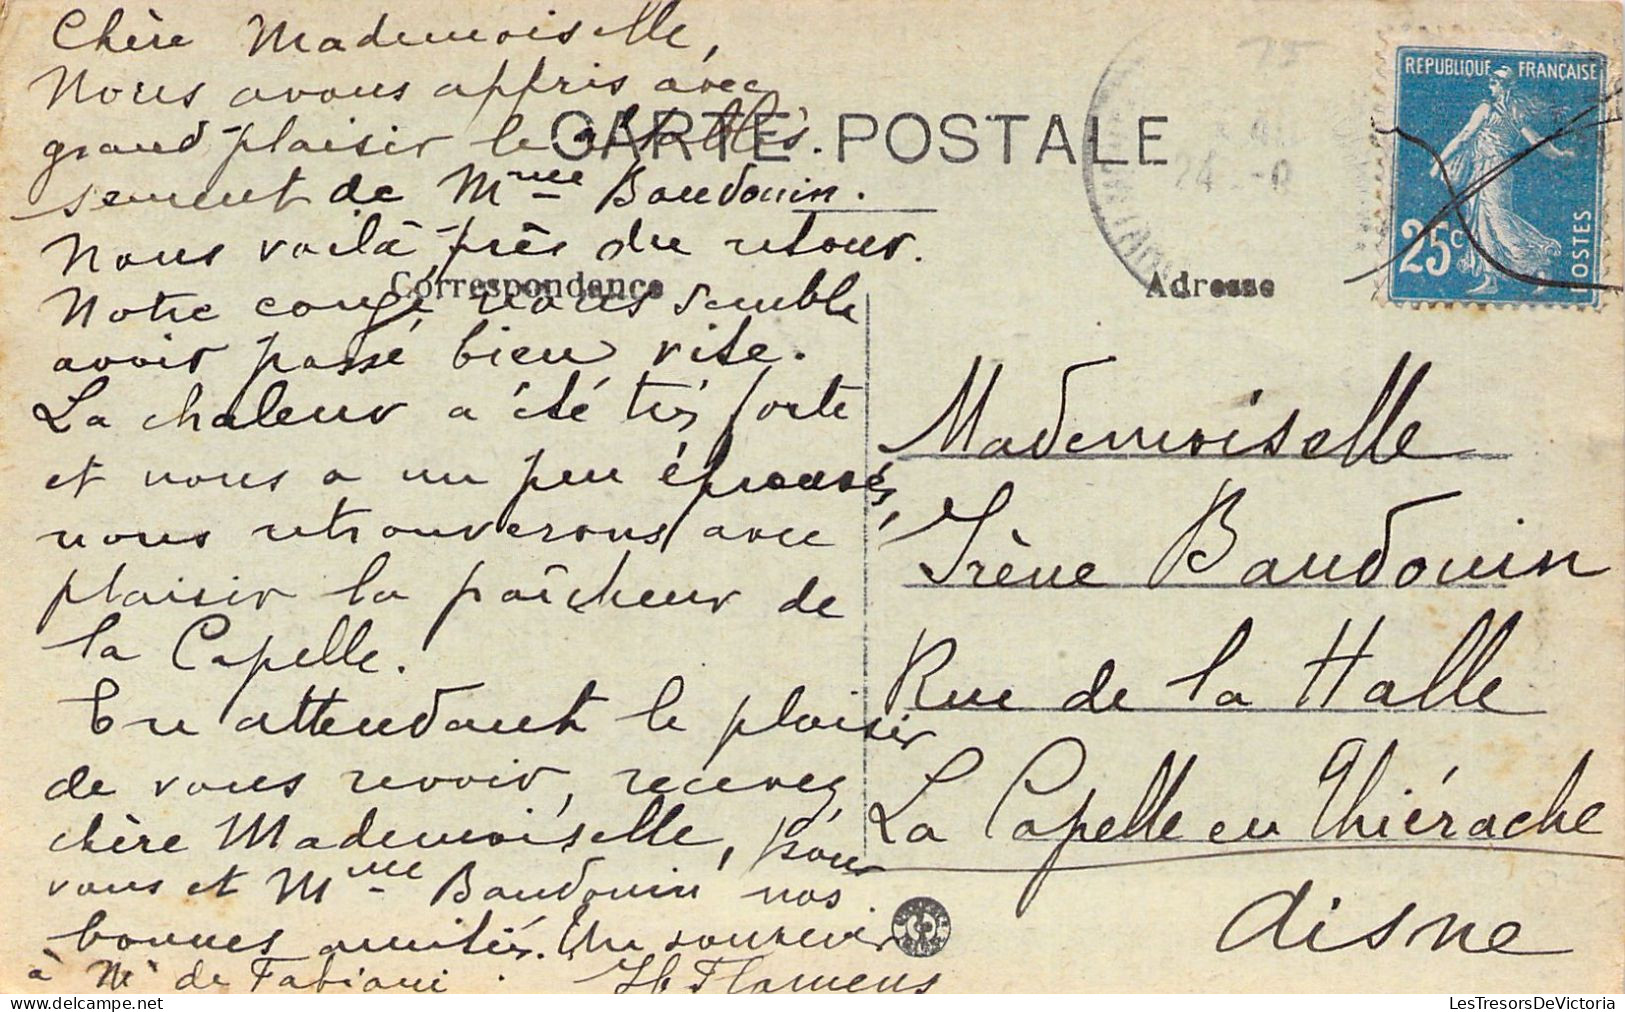 Chère Mademoiselle,
Nous avons appris avec
grand plaisir le rétablis-
sement de Mme Baudouin.
Nous voilà près du retour.
Notre congé nous semble
avoir passé bien vite.
La chaleur a été très forte
et nous a un peu éprouvés,
nous retrouverons avec
plaisir la fraîcheur de
la Capelle.
En attendant le plaisir
de vous revoir, recevez
chère Mademoiselle, pour
vous et Mme Baudouin nos
bonnes amitiés. Un souvenir
à Mr de Fabiani. Flamens
CARTE POSTALE
Correspondance
Adresse
REPUBLIQUE FRANÇAISE
25c
POSTES
24
Mademoiselle
Irène Baudouin
Rue de la Halle
La Capelle en Thiérache
Aisne
LesTresorsDeVictoria